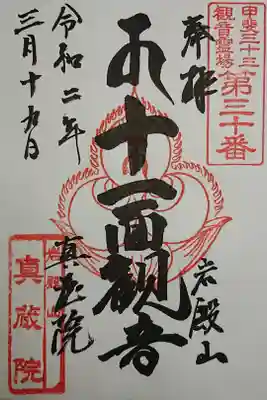 甲斐三十三
観音霊場
第三十番
奉拝
岩殿山
十一面観音
真蔵院
令和二年
三月十九日
真蔵院